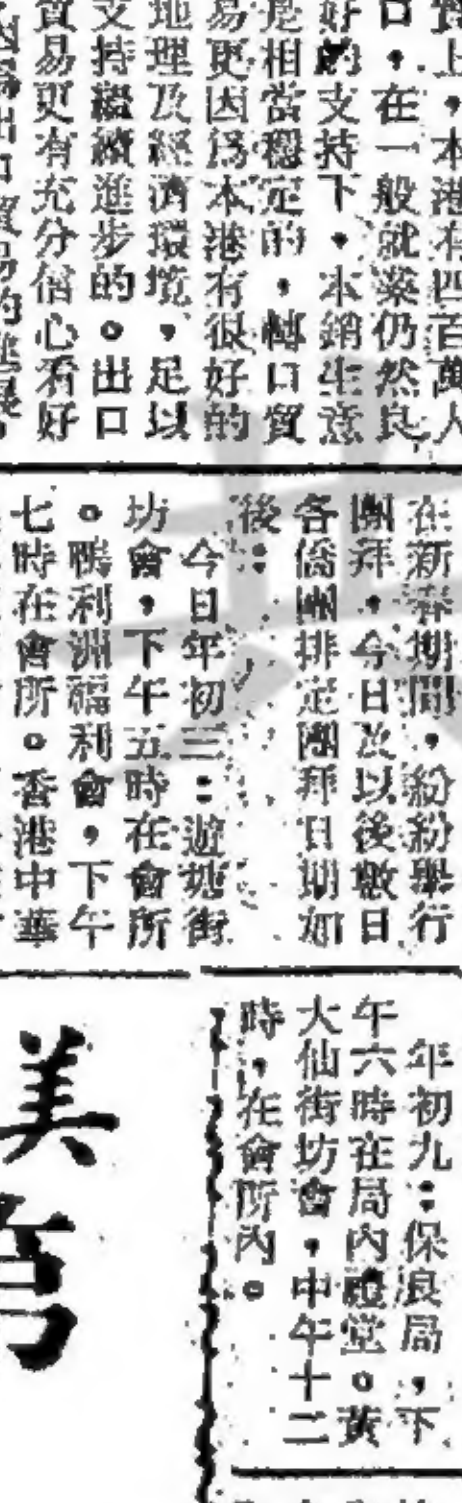 貿上，本港有四百萬人
口，在一般就業仍然良
好的支持下，本銷生意
是相當穩定的，轉口貿
易更因爲本港有很好的
地理及經濟環境，足以
支持繼續進步的。出口
貿易更有充分信心看好
出口貿易的進展，
在新春期間，紛紛舉行
團拜，今日及以後數日
各僑團排定團拜日期如
後：
今日年初三：遊塘街
坊會，下午五時在會所
。鴨利洲福利會，下午
七時在會所。香港中華
年初九：保良局，下
午六時在局內禮堂。黃
大仙街坊會，中午十二
時，在會所內。
美